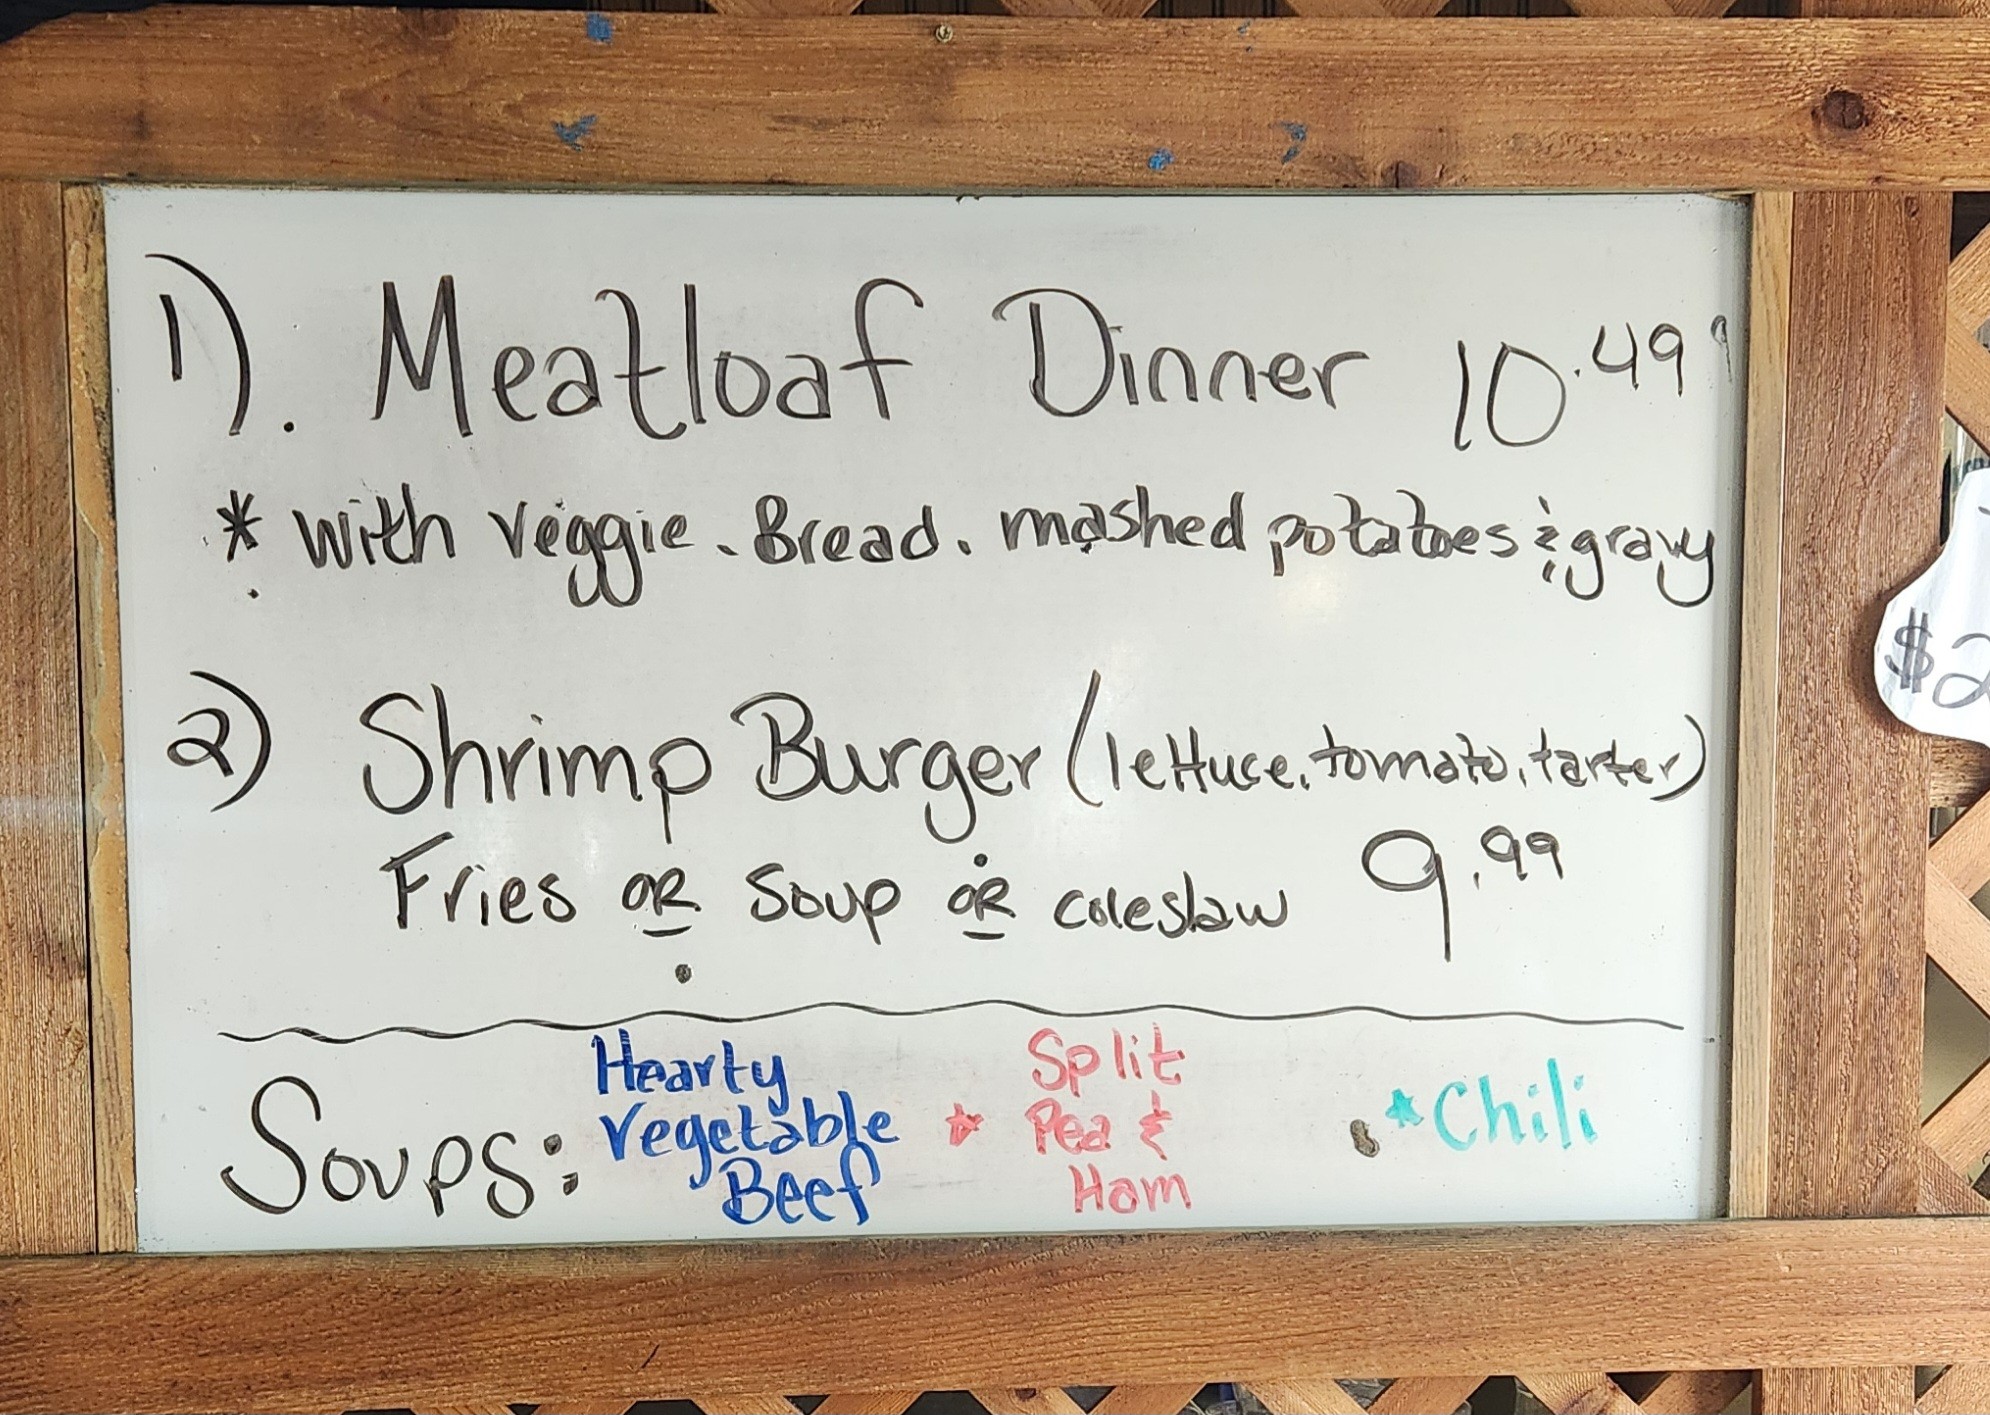 1). Meatloaf Dinner 10.49
* with veggie. Bread. mashed potatoes & gravy
2) Shrimp Burger (lettuce, tomato, tarter)
Fries OR Soup OR coleslaw 9.99
Soups: Hearty
Vegetable
Beef
* Split
Pea &
Ham
* Chili
$2